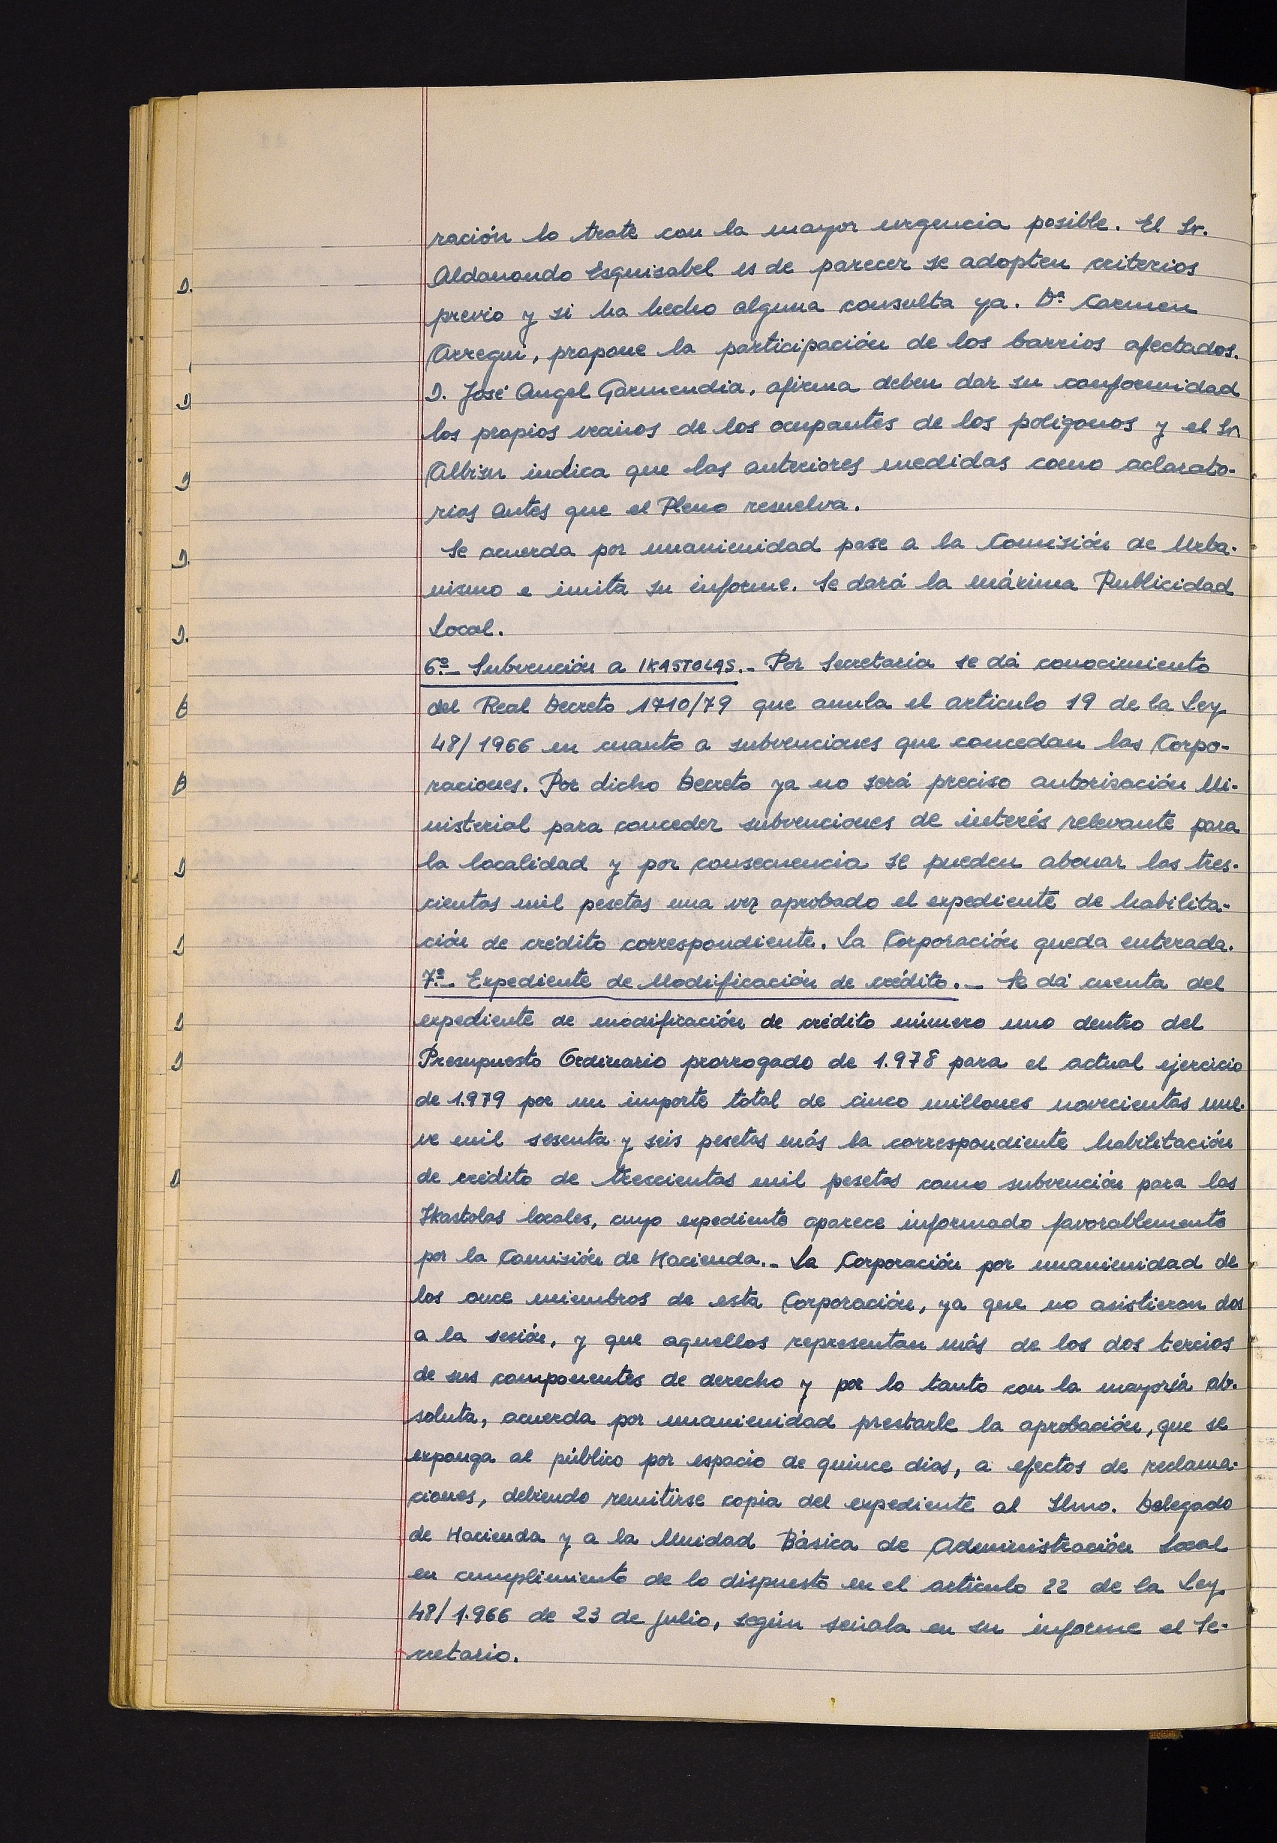 ración lo trate con la mayor urgencia posible. El Sr.
Aldanondo Esquisabel es de parecer se adopten criterios
previo y si ha hecho alguna consulta ya. Dª Carmen
Arregui, propone la participación de los barrios afectados.
D. José Angel Garmendia, afirma deben dar su conformidad
los propios vecinos de los ocupantes de los poligonos y el Sr
Albisu indica que las anteriores medidas como aclarato-
rias antes que el Pleno resuelva.
Se acuerda por unanimidad pase a la Comisión de Urba-
nismo e imita su informe. Se dará la máxima Publicidad
Local.
6º.- Subvención a IKASTOLAS.- Por Secretaria se dá conocimiento
del Real Decreto 1710/79 que anula el articulo 19 de la Ley
48/1966 en cuanto a subvenciones que concedan las Corpo-
raciones. Por dicho Decreto ya no será preciso autorización Mi-
nisterial para conceder subvenciones de interés relevante para
la localidad y por consecuencia se pueden abonar las tres-
cientas mil pesetas una vez aprobado el expediente de habilita-
ción de crédito correspondiente. La Corporación queda enterada.
7º.- Expediente de Modificación de crédito.- Se dá cuenta del
expediente de modificación de crédito número uno dentro del
Presupuesto Ordinario prorrogado de 1.978 para el actual ejercicio
de 1.979 por un importe total de cinco millones novecientas nue-
ve mil sesenta y seis pesetas más la correspondiente habilitación
de crédito de trescientas mil pesetas como subvención para las
Ikastolas locales, cuyo expediente aparece informado favorablemente
por la Comisión de Hacienda.- La Corporación por unanimidad de
los once miembros de esta Corporación, ya que no asistieron dos
a la sesión, y que aquellos representan más de los dos tercios
de sus componentes de derecho y por lo tanto con la mayoría ab-
soluta, acuerda por unanimidad prestarle la aprobación, que se
exponga al público por espacio de quince dias, a efectos de reclama-
ciones, debiendo remitirse copia del expediente al Ilmo. Delegado
de Hacienda y a la Unidad Básica de Administración Local
en cumplimiento de lo dispuesto en el artículo 22 de la Ley
48/1.966 de 23 de Julio, según señala en su informe el Se-
cretario.